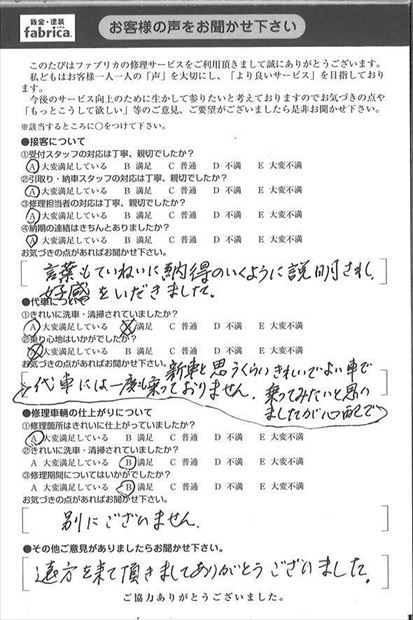 鈑金・塗装
fabrica.
お客様の声をお聞かせ下さい
このたびはファブリカの修理サービスをご利用頂きまして誠にありがとうございます。
私どもはお客様一人一人の「声」を大切にし、「より良いサービス」を目指しております。
今後のサービス向上のために生かして参りたいと考えておりますのでお気づきの点や
「もっとこうして欲しい」等のご意見、ご要望がございましたら是非お聞かせ下さい。
※該当するところに○をつけて下さい。
●接客について
①受付スタッフの対応は丁寧、親切でしたか?
A 大変満足している B 満足 C 普通 D 不満 E 大変不満
②引取り・納車スタッフの対応は丁寧、親切でしたか?
A 大変満足している B 満足 C 普通 D 不満 E 大変不満
③修理担当者の対応は丁寧、親切でしたか?
A 大変満足している B 満足 C 普通 D 不満 E 大変不満
④納期の連絡はきちんとありましたか?
A 大変満足している B 満足 C 普通 D 不満 E 大変不満
お気づきの点があればお聞かせ下さい。
言葉もていねいに納得のいくように説明され、
好感をいだきました。
●代車について
①きれいに洗車・清掃されていましたか?
A 大変満足している B 満足 C 普通 D 不満 E 大変不満
②乗り心地はいかがでしたか?
A 大変満足している B 満足 C 普通 D 不満 E 大変不満
お気づきの点があればお聞かせ下さい。
新車と思うくらいきれいでよい車で
代車には一度も乗っておりません。
乗ってみたいと思い
ましたが心配で
●修理車輌の仕上がりについて
①修理箇所はきれいに仕上がっていましたか?
A 大変満足している B 満足 C 普通 D 不満 E 大変不満
②きれいに洗車・清掃されていましたか?
A 大変満足している B 満足 C 普通 D 不満 E 大変不満
③修理期間についてはいかがでしたか?
A 大変満足している B 満足 C 普通 D 不満 E 大変不満
お気づきの点があればお聞かせ下さい。
別にございません。
●その他ご意見がありましたらお聞かせ下さい。
遠方を来て頂きましてありがとうございました。
ご協力ありがとうございました。